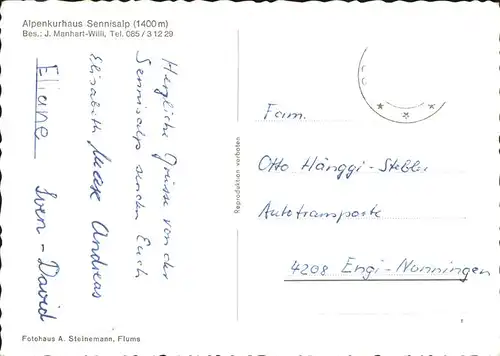 Alpenkurhaus Sennisalp (1400 m)
Bes.: J. Manhart-Willi, Tel. 085 / 3 12 29
Herzliche Grüsse von der
Sennisalp senden Euch
Elisabeth Max Andreas
Eliane Sven-David
Reproduktion verboten
Fam.
Otto Hänggi-Stebler
Autotransporte
4208 Engi-Nunningen
Fotohaus A. Steinemann, Flums